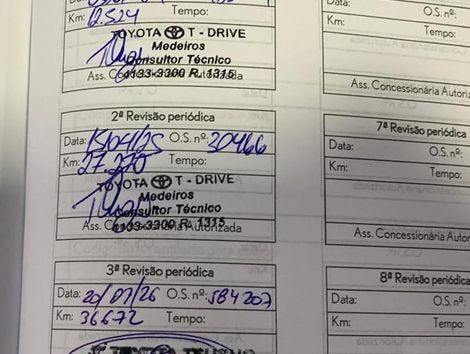 Km: 12.524 Tempo:
TOYOTA T - DRIVE
Medeiros
Consultor Técnico
4133-3300 R. 1315
Ass. Concessionária Autorizada
2ª Revisão periódica
Data: 15/04/25 O.S. nº: 30466
Km: 27.270 Tempo:
TOYOTA T - DRIVE
Medeiros
Consultor Técnico
4133-3300 R. 1315
Ass. Concessionária Autorizada
3ª Revisão periódica
Data: 20/01/26 O.S. nº: 584207
Km: 36672 Tempo:
Data: O.S.
Km:
Ass. Concessionária Autoriz
7ª Revisão periód
Data: O.S. nº:
Km: Tem
Ass. Concessionária Autori
8ª Revisão period
Data: O.S. nº:
Km: Tem